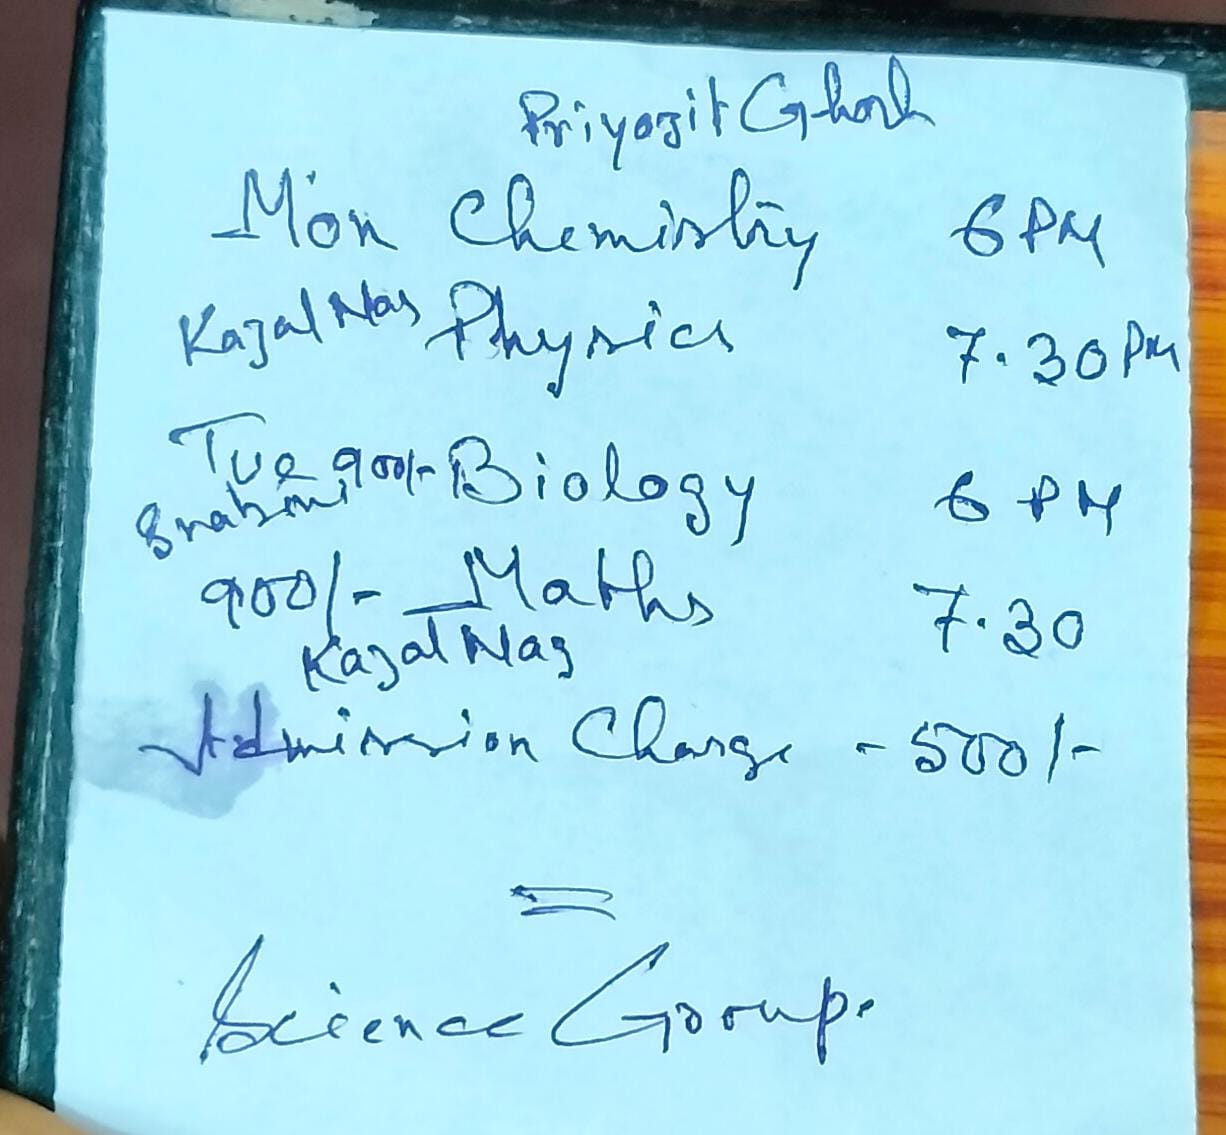 Priyojit Ghosh
Mon Chemistry 6 PM
Kajal Nag Physics 7.30 PM
Tue 900/- Biology 6 PM
900/- Maths 7.30
Kajal Nag
Admission Charge - 500/-
Science Group.